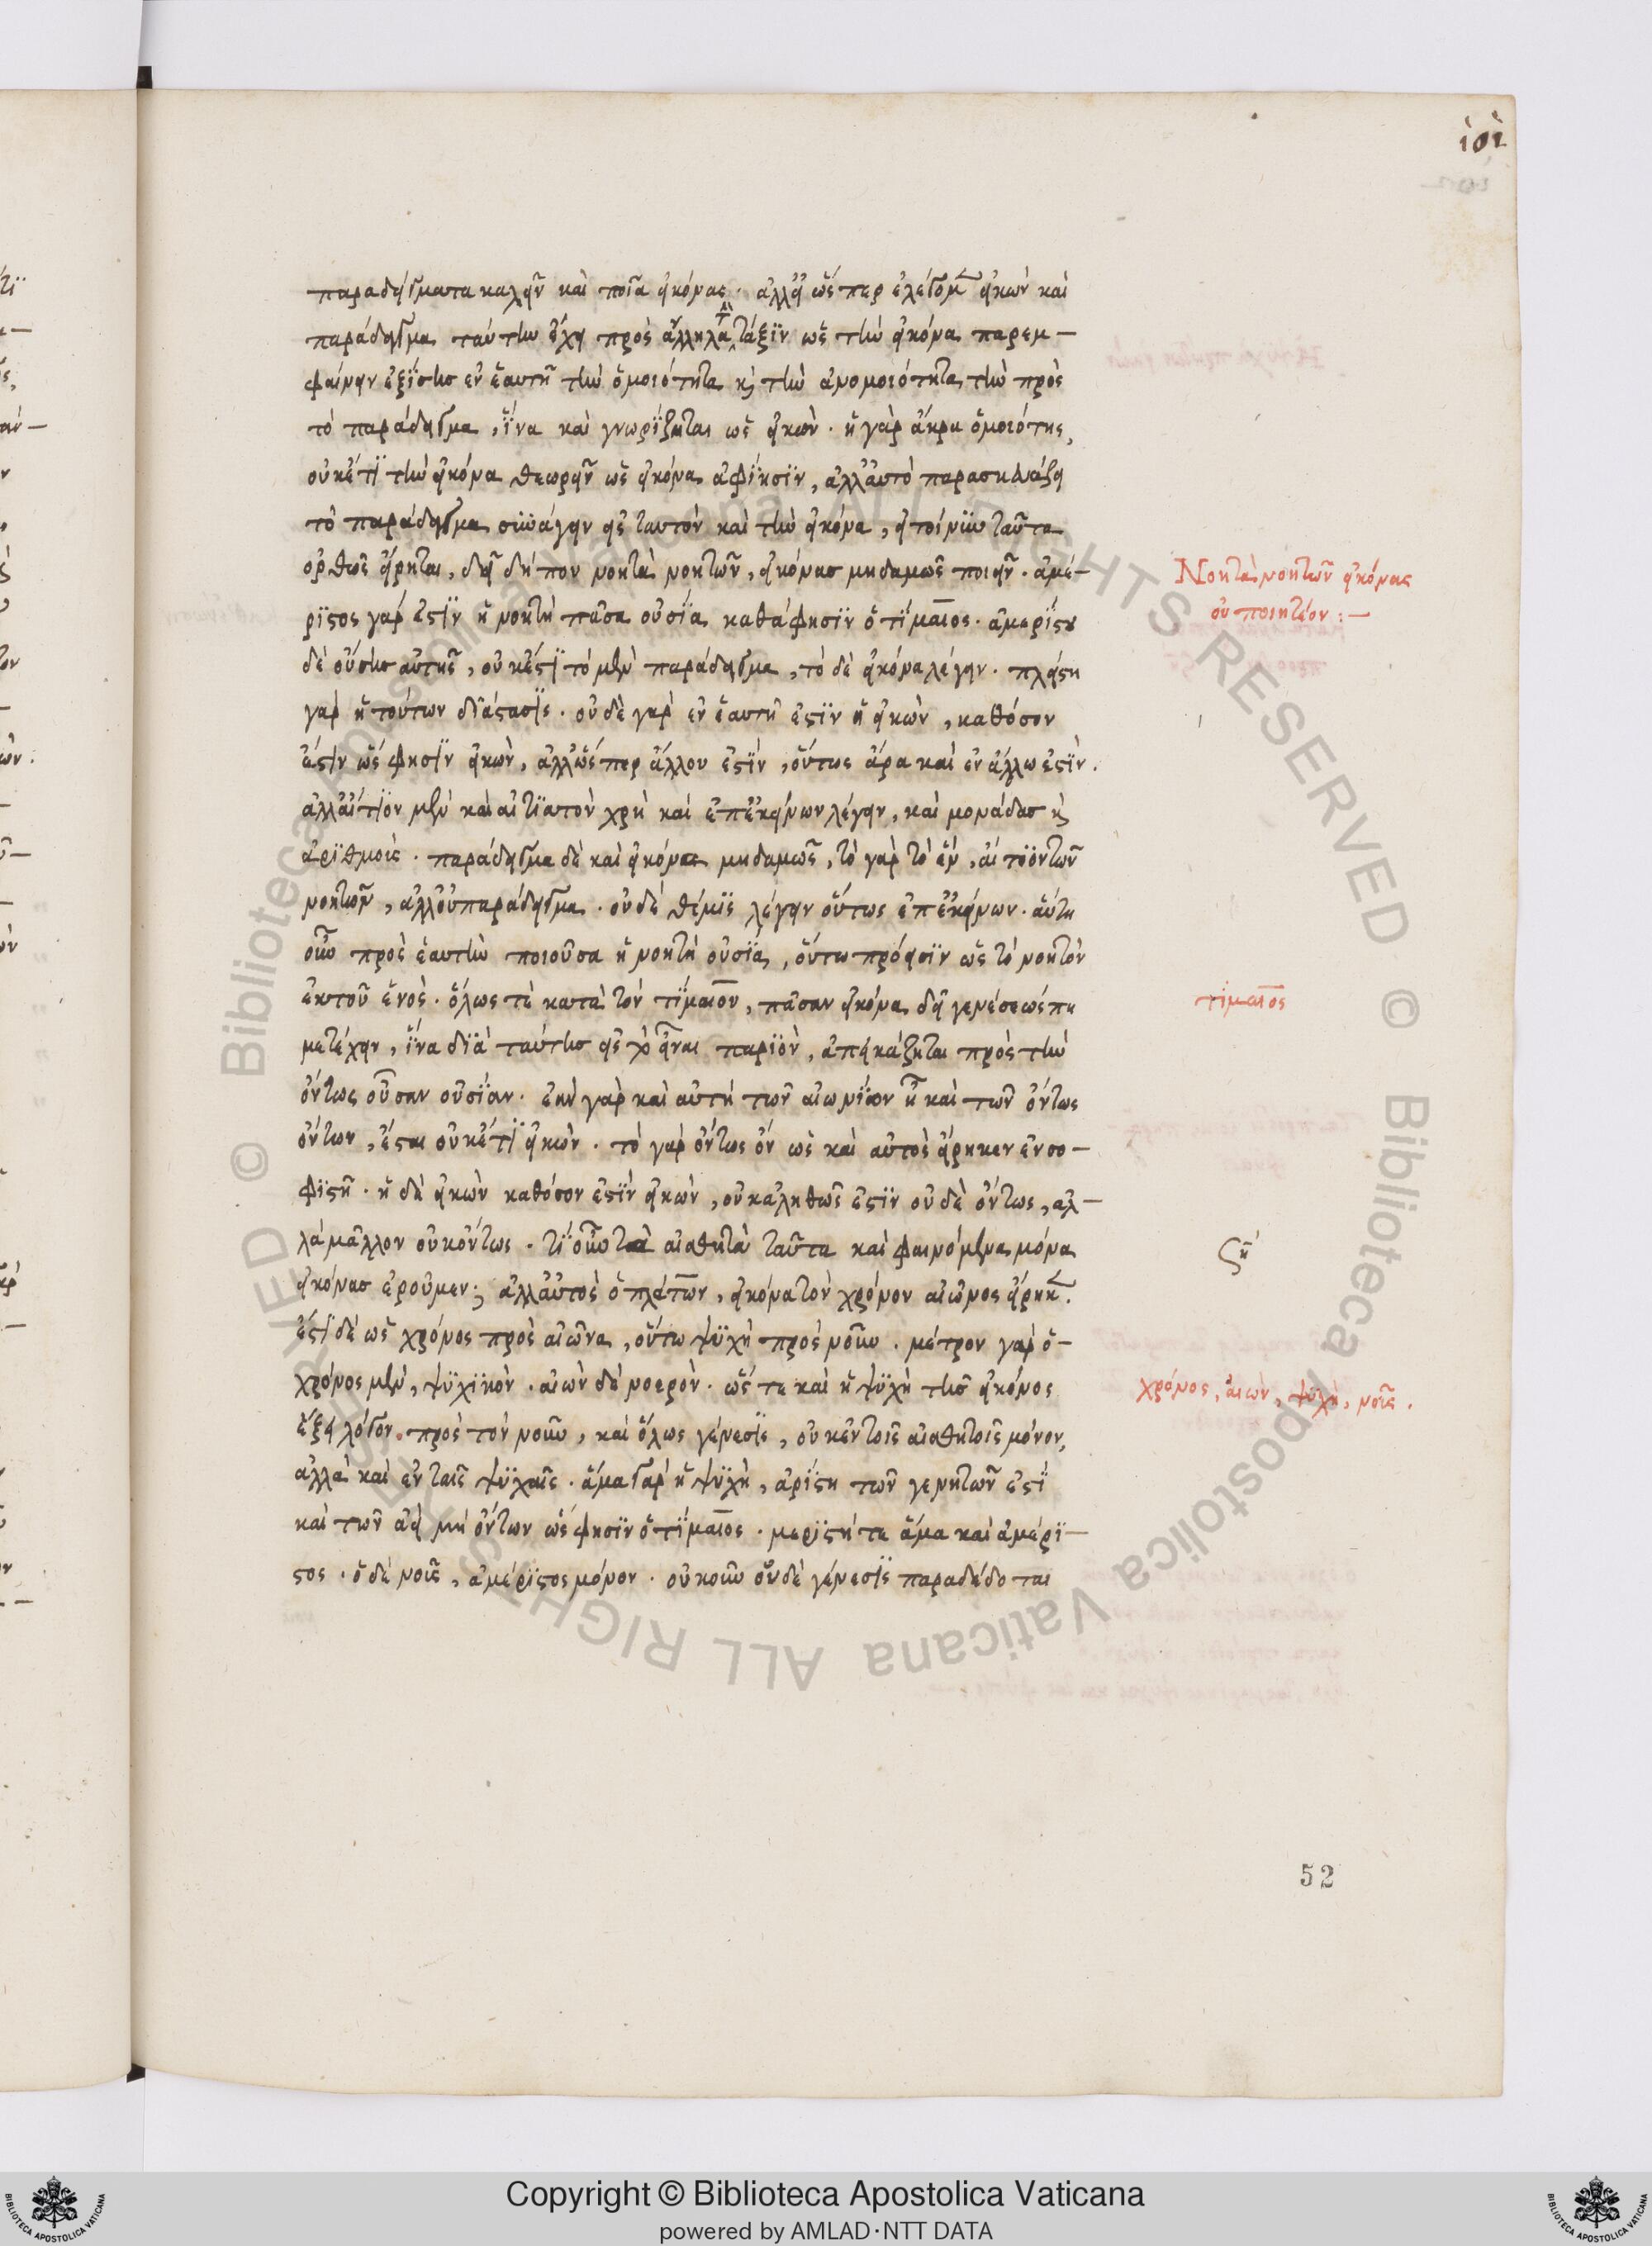 ἱοὶ
παραδείγματα καλεῖν καὶ ποῖα εἰκόνας · ἀλλ' εἰ ὥσπερ ἐλέγομεν εἰκὼν καὶ
παράδειγμα ταύτην ἔχει πρὸς ἄλληλα τὴν τάξϊν ὡς τὴν εἰκόνα παρεμ –
φαίνειν ἐξίσης ἐν ἑαυτῇ τὴν ὁμοιότητα κὶ τὴν ἀνομοιότητα τὴν πρὸς
τὸ παράδειγμα , ἵνα καὶ γνωρΐζηται ὡς εἰκὼν · ἡ γὰρ ἄκρα ὁμοιότης,
οὐκέτϊ τὴν εἰκόνα θεωρεῖν ὡς εἰκόνα ἀφίησϊν , ἀλλ' αὐτὸ παρασκευάζει
τὸ παράδειγμα συνάγειν εἰς ταυτὸν καὶ τὴν εἰκόνα , εἰ τοίνϋν ταῦτα
ὀρθῶς εἴρηται , δεῖ δήπου νοητὰ νοητῶν , εἰκόνας μηδαμῶς ποιεῖν · ἀμέ –
ρϊστος γάρ ἐστϊν ἡ νοητὴ πᾶσα οὐσία καθά φησϊν ὁ τίμαιος · ἀμερίστου
δὲ οὔσης αὐτῆς , οὐκ ἔστϊ τὸ μὲν παράδειγμα , τὸ δὲ εἰκόνα λέγειν · πλείστη
γὰρ ἡ τούτων δϊάστασϊς · οὐδὲ γὰρ ἐν ἑαυτῇ ἐστϊν ἡ εἰκὼν , καθόσον
ἐστὶν ὥς φησϊν εἰκὼν , ἀλλ' ὥσπερ ἄλλου ἐστϊν , οὕτως ἄρα καὶ ἐν ἄλλω ἐστϊν .
ἀλλ' αἴτϊον μὲν καὶ αἰτϊατὸν χρὴ καὶ ἐπ' ἐκείνων λέγειν , καὶ μονάδας κὶ
ἀρϊθμοὺς · παράδειγμα δὲ καὶ εἰκόνας μηδαμῶς , τὸ γὰρ τὸ ἓν , αἴτϊον τῶν
νοητῶν , ἀλλ' οὐ παράδειγμα · οὐδὲ θέμϊς λέγειν οὕτως ἐπ' ἐκείνων · αὕτη
οὖν πρὸς ἑαυτὴν ποιοῦσα ἡ νοητὴ οὐσία , οὕτω πρόεισϊν ὡς τὸ νοητὸν
ἐκ τοῦ ἑνὸς · ὅλως τὲ κατὰ τὸν τίμαιον , πᾶσαν εἰκόνα δεῖ γενέσεώς πη
μετέχειν , ἵνα δϊὰ ταύτης εἰς τὸ εἶναι παρϊὸν , ἀπεικάζηται πρὸς τὴν
ὄντως οὖσαν οὐσίαν · ἐὰν γὰρ καὶ αὐτὴ τῶν αἰωνίων ᾖ καὶ τῶν ὄντως
ὄντων , ἔσται οὐκέτϊ εἰκὼν · τὸ γὰρ ὄντως ὂν ὡς καὶ αὐτὸς εἴρηκεν ἐν σο –
φϊστῇ · ἡ δὲ εἰκὼν καθόσον ἐστϊν εἰκὼν , οὐκ ἀληθῶς ἐστϊν οὐδὲ ὄντως , ἀλ –
λὰ μᾶλλον οὐκ ὄντως · τί οὖν τὰ αἰσθητὰ ταῦτα καὶ φαινόμενα μόνα
εἰκόνας ἐροῦμεν ; ἀλλ' αὐτὸς ὁ πλάτων , εἰκόνα τὸν χρόνον αἰῶνος εἴρηκεν .
ἔστϊ δὲ ὡς χρόνος πρὸς αἰῶνα , οὕτω ψϋχὴ πρὸς νοῦν · μέτρον γὰρ ὁ –
χρόνος μὲν , ψϋχϊκὸν · αἰὼν δὲ νοερὸν · ὥστε καὶ ἡ ψϋχὴ τῆς εἰκόνος
ἕξει λόγον πρὸς τὸν νοῦν , καὶ ὅλως γένεσϊς , οὐκ ἐν τοῖς αἰσθητοῖς μόνον,
ἀλλὰ καὶ ἐν ταῖς ψϋχαῖς · ἅμα γὰρ ἡ ψϋχὴ , ἀρίστη τῶν γενητῶν ἐστὶ
καὶ τῶν ἀεὶ μὴ ὄντων ὥς φησϊν ὁ τίμαιος · μερϊστή τε ἅμα καὶ ἀμέρϊ –
στος · ὁ δὲ νοῦς , ἀμέρϊστος μόνον · οὐκοῦν οὐδὲ γένεσϊς παραδέδοται
Νοητὰ νοητῶν εἰκόνας
οὐ ποιητέον : –
τίμαιος
ζη
χρόνος , αἰὼν , ψϋχὴ , νοῦς .
52
Copyright © Biblioteca Apostolica Vaticana
powered by AMLAD·NTT DATA